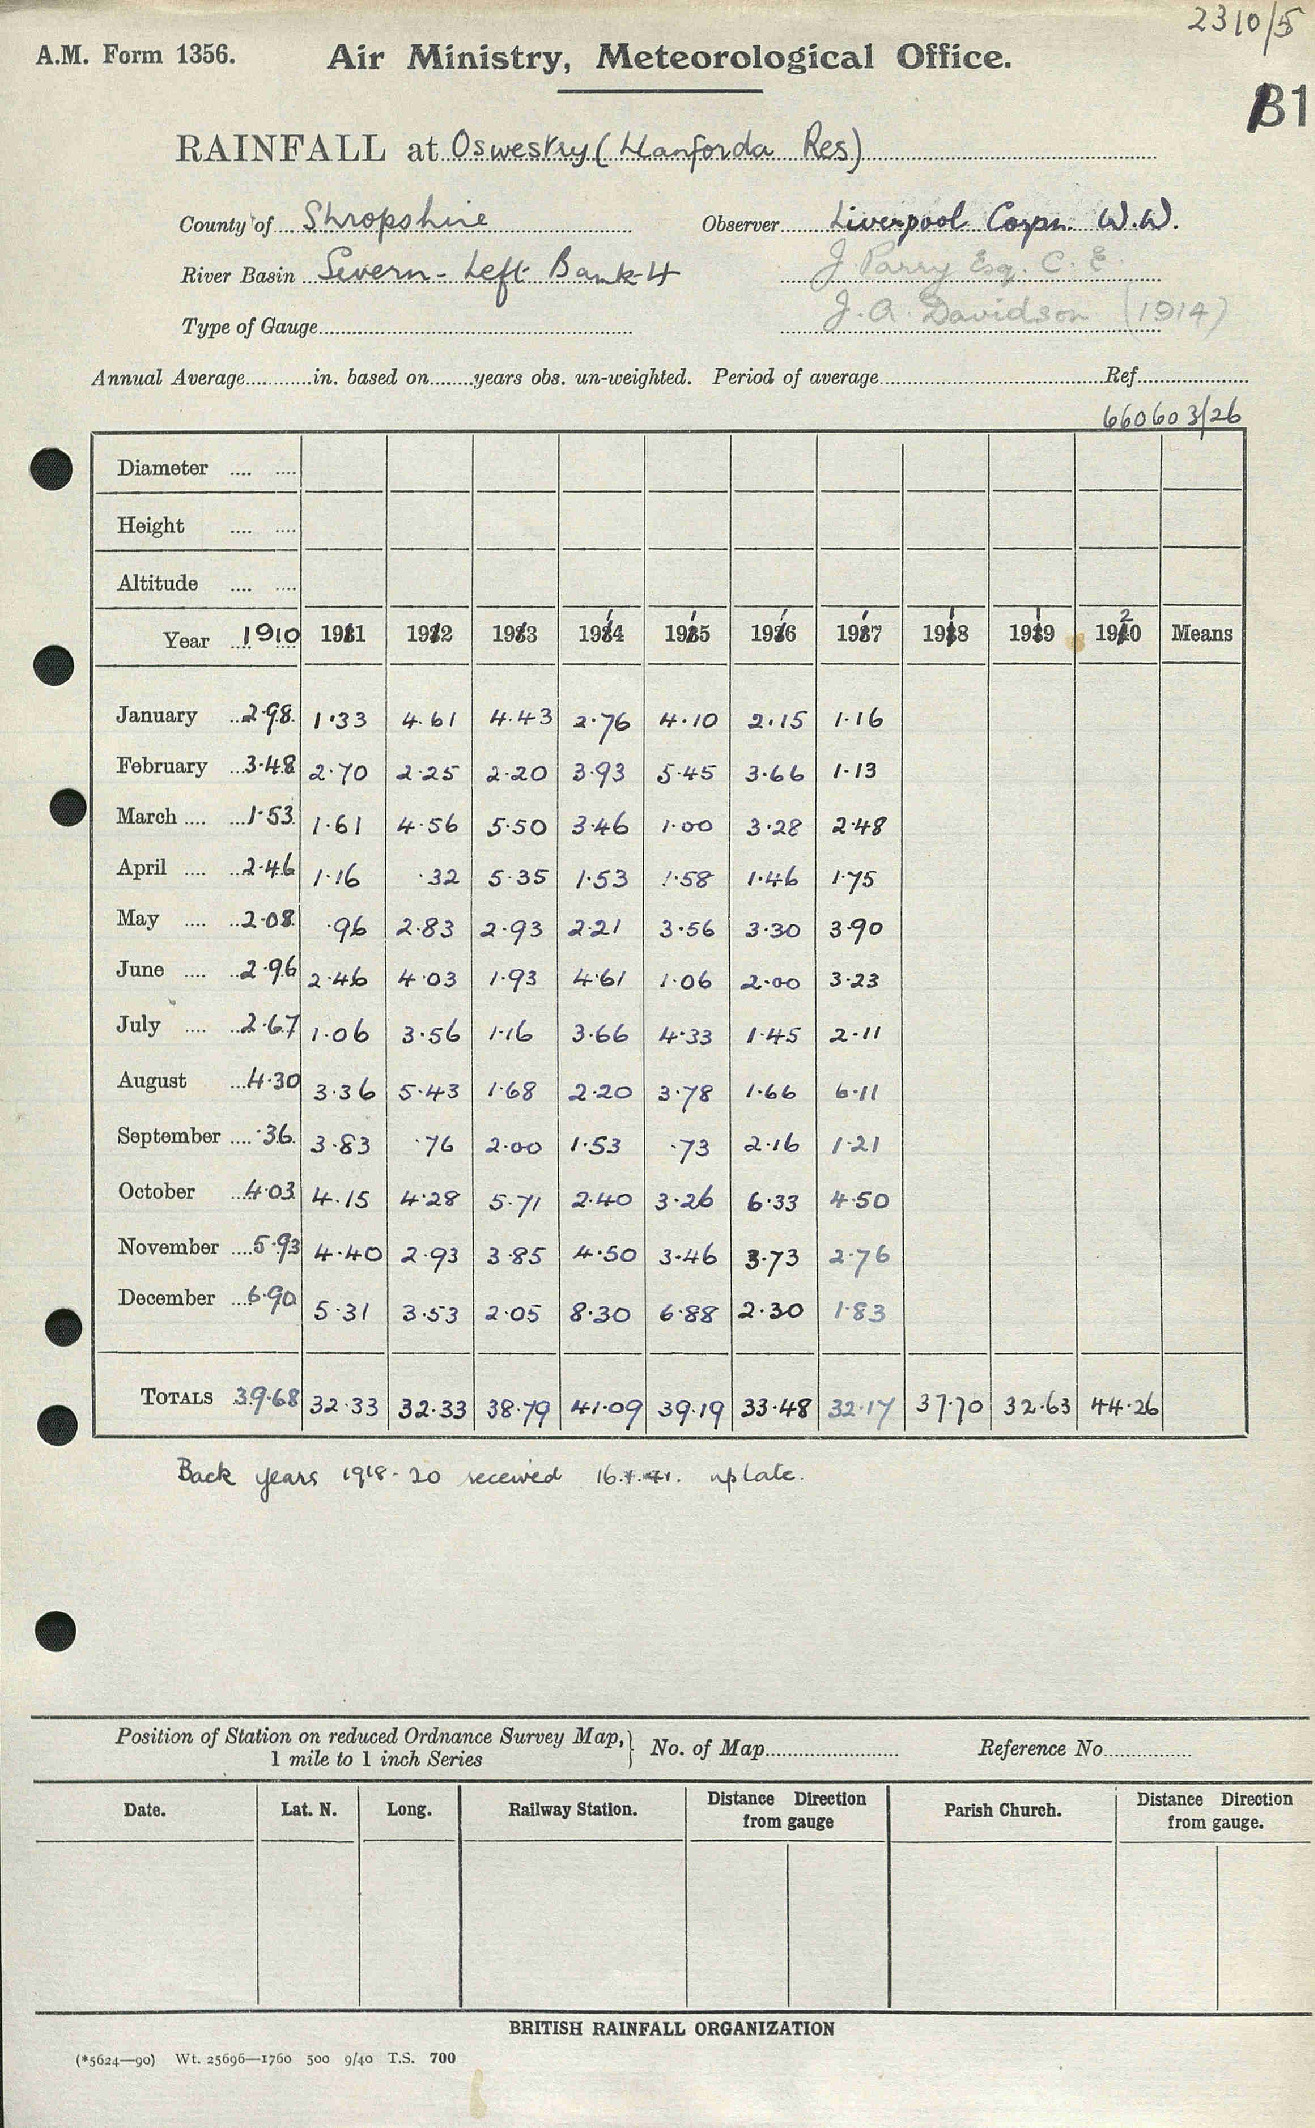 2310/5
A.M. Form 1356. Air Ministry, Meteorological Office.
B1
RAINFALL at Oswestry (Llanforda Res)
County of Shropshire Observer Liverpool Corpn. W.W.
River Basin Severn - Left Bank - 4 J Parry Esq. C. E.
Type of Gauge J. A. Davidson (1914)
Annual Average in. based on years obs. un-weighted. Period of average Ref
660603/26
Diameter .... ....
Height .... ....
Altitude .... ....
Year 1910 1911 1912 1913 1914 1915 1916 1917 1918 1919 1920 Means
January 2.98 1.33 4.61 4.43 2.76 4.10 2.15 1.16
February 3.48 2.70 2.25 2.20 3.93 5.45 3.66 1.13
March .... 1.53 1.61 4.56 5.50 3.46 1.00 3.28 2.48
April .... 2.46 1.16 .32 5.35 1.53 1.58 1.46 1.75
May .... 2.08 .96 2.83 2.93 2.21 3.56 3.30 3.90
June .... 2.96 2.46 4.03 1.93 4.61 1.06 2.00 3.23
July .... 2.67 1.06 3.56 1.16 3.66 4.33 1.45 2.11
August 4.30 3.36 5.43 1.68 2.20 3.78 1.66 6.11
September .... .36 3.83 .76 2.00 1.53 .73 2.16 1.21
October 4.03 4.15 4.28 5.71 2.40 3.26 6.33 4.50
November 5.93 4.40 2.93 3.85 4.50 3.46 3.73 2.76
December 6.90 5.31 3.53 2.05 8.30 6.88 2.30 1.83
TOTALS 39.68 32.33 32.33 38.79 41.09 39.19 33.48 32.17 37.70 32.63 44.26
Back years 1918-20 received 16. . up late.
Position of Station on reduced Ordnance Survey Map, } No. of Map Reference No
1 mile to 1 inch Series
Date. Lat. N. Long. Railway Station. Distance Direction from gauge Parish Church. Distance Direction from gauge.
BRITISH RAINFALL ORGANIZATION
(*5624—90) Wt. 25696—1760 500 9/40 T.S. 700